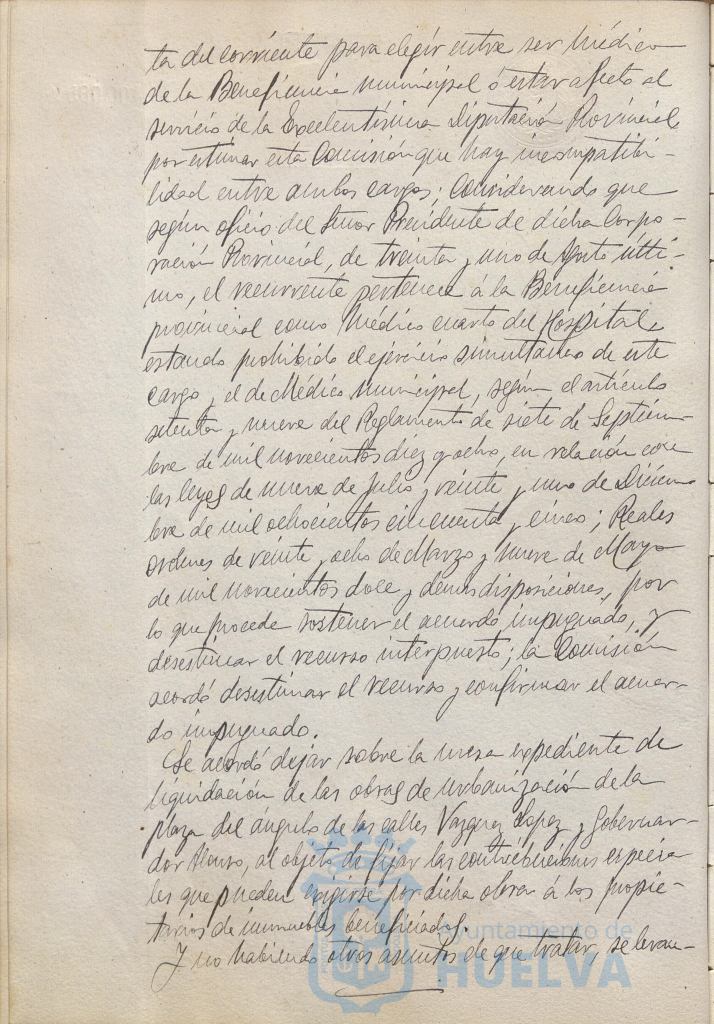 ta del corriente para elegir entre ser Médico
de la Beneficencia municipal ó estar afecto al
servicio de la Excelentísima Diputación Provincial,
por estimar esta Comisión que hay incompatibi-
lidad entre ambos cargos; Considerando que
según oficio del Señor Presidente de dicha Corpo-
ración Provincial, de treinta y uno de Agosto últi-
mo, el recurrente pertenece á la Beneficencia
provincial como Médico cuarto del Hospital,
estando prohibido el ejercicio simultaneo de este
cargo y el de Médico municipal, según el artículo
setenta y nueve del Reglamento de siete de Septiem-
bre de mil novecientos diez y ocho, en relación con
las leyes de nueve de Julio y veinte y uno de Diciem-
bre de mil ochocientos cincuenta y cinco; Reales
ordenes de veinte y ocho de Marzo y nueve de Mayo
de mil novecientos doce y demas disposiciones, por
lo que procede sostener el acuerdo impugnado, y
desestimar el recurso interpuesto; la Comisión
acordó desestimar el recurso y confirmar el acuer-
do impugnado.
Se acordó dejar sobre la mesa expediente de
liquidación de las obras de urbanización de la
plaza del ángulo de las calles Vazquez Lopez y Goberna-
dor Alonso, al objeto de fijar las contribuciones especia-
les que pueden exigirse por dicha obra á los propie-
tarios de inmuebles beneficiados.
Y no habiendo otros asuntos de que tratar, se levan-
Ayuntamiento de
HUELVA